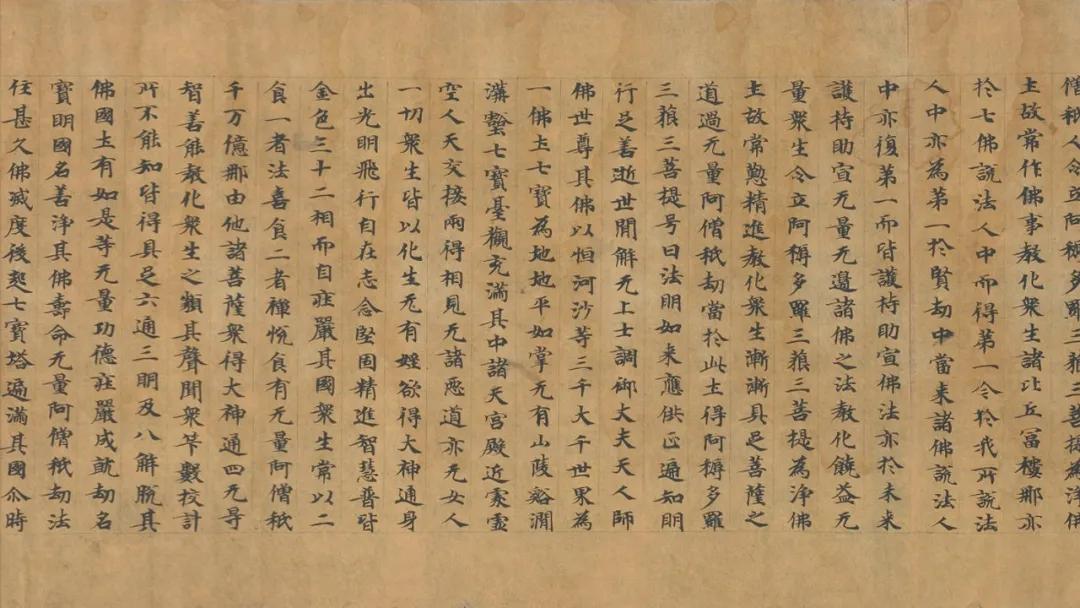 僧祇人令立阿耨多羅三藐三菩提為淨佛
土故常作佛事教化衆生諸比丘冨樓那亦
於七佛說法人中而得第一今於我所說法
人中亦為第一於賢劫中當来諸佛說法人
中亦復第一而皆護持助宣佛法亦於未来
護持助宣无量无邊諸佛之法教化饒益无
量衆生令立阿耨多羅三藐三菩提為淨佛
土故常懃精進教化衆生漸漸具足菩薩之
道過无量阿僧祇劫當於此土得阿耨多羅
三藐三菩提号曰法明如来應供正遍知明
行足善逝世間解无上士調御丈夫天人師
佛世尊其佛以恒河沙等三千大千世界為
一佛土七寶為地地平如掌无有山陵谿澗
溝壑七寶臺觀充滿其中諸天宮殿近處虛
空人天交接兩得相見无諸惡道亦无女人
一切衆生皆以化生无有婬欲得大神通身
出光明飛行自在志念堅固精進智慧普皆
金色三十二相而自莊嚴其國衆生常以二
食一者法喜食二者禪恱食有无量阿僧祇
千万億那由他諸菩薩衆得大神通四无㝵
智善能教化衆生之類其聲聞衆筭數挍計
所不能知皆得具足六通三明及八解脫其
佛國土有如是等无量功德莊嚴成就劫名
寶明國名善淨其佛壽命无量阿僧祇劫法
住甚久佛滅度後起七寶塔遍滿其國尒時